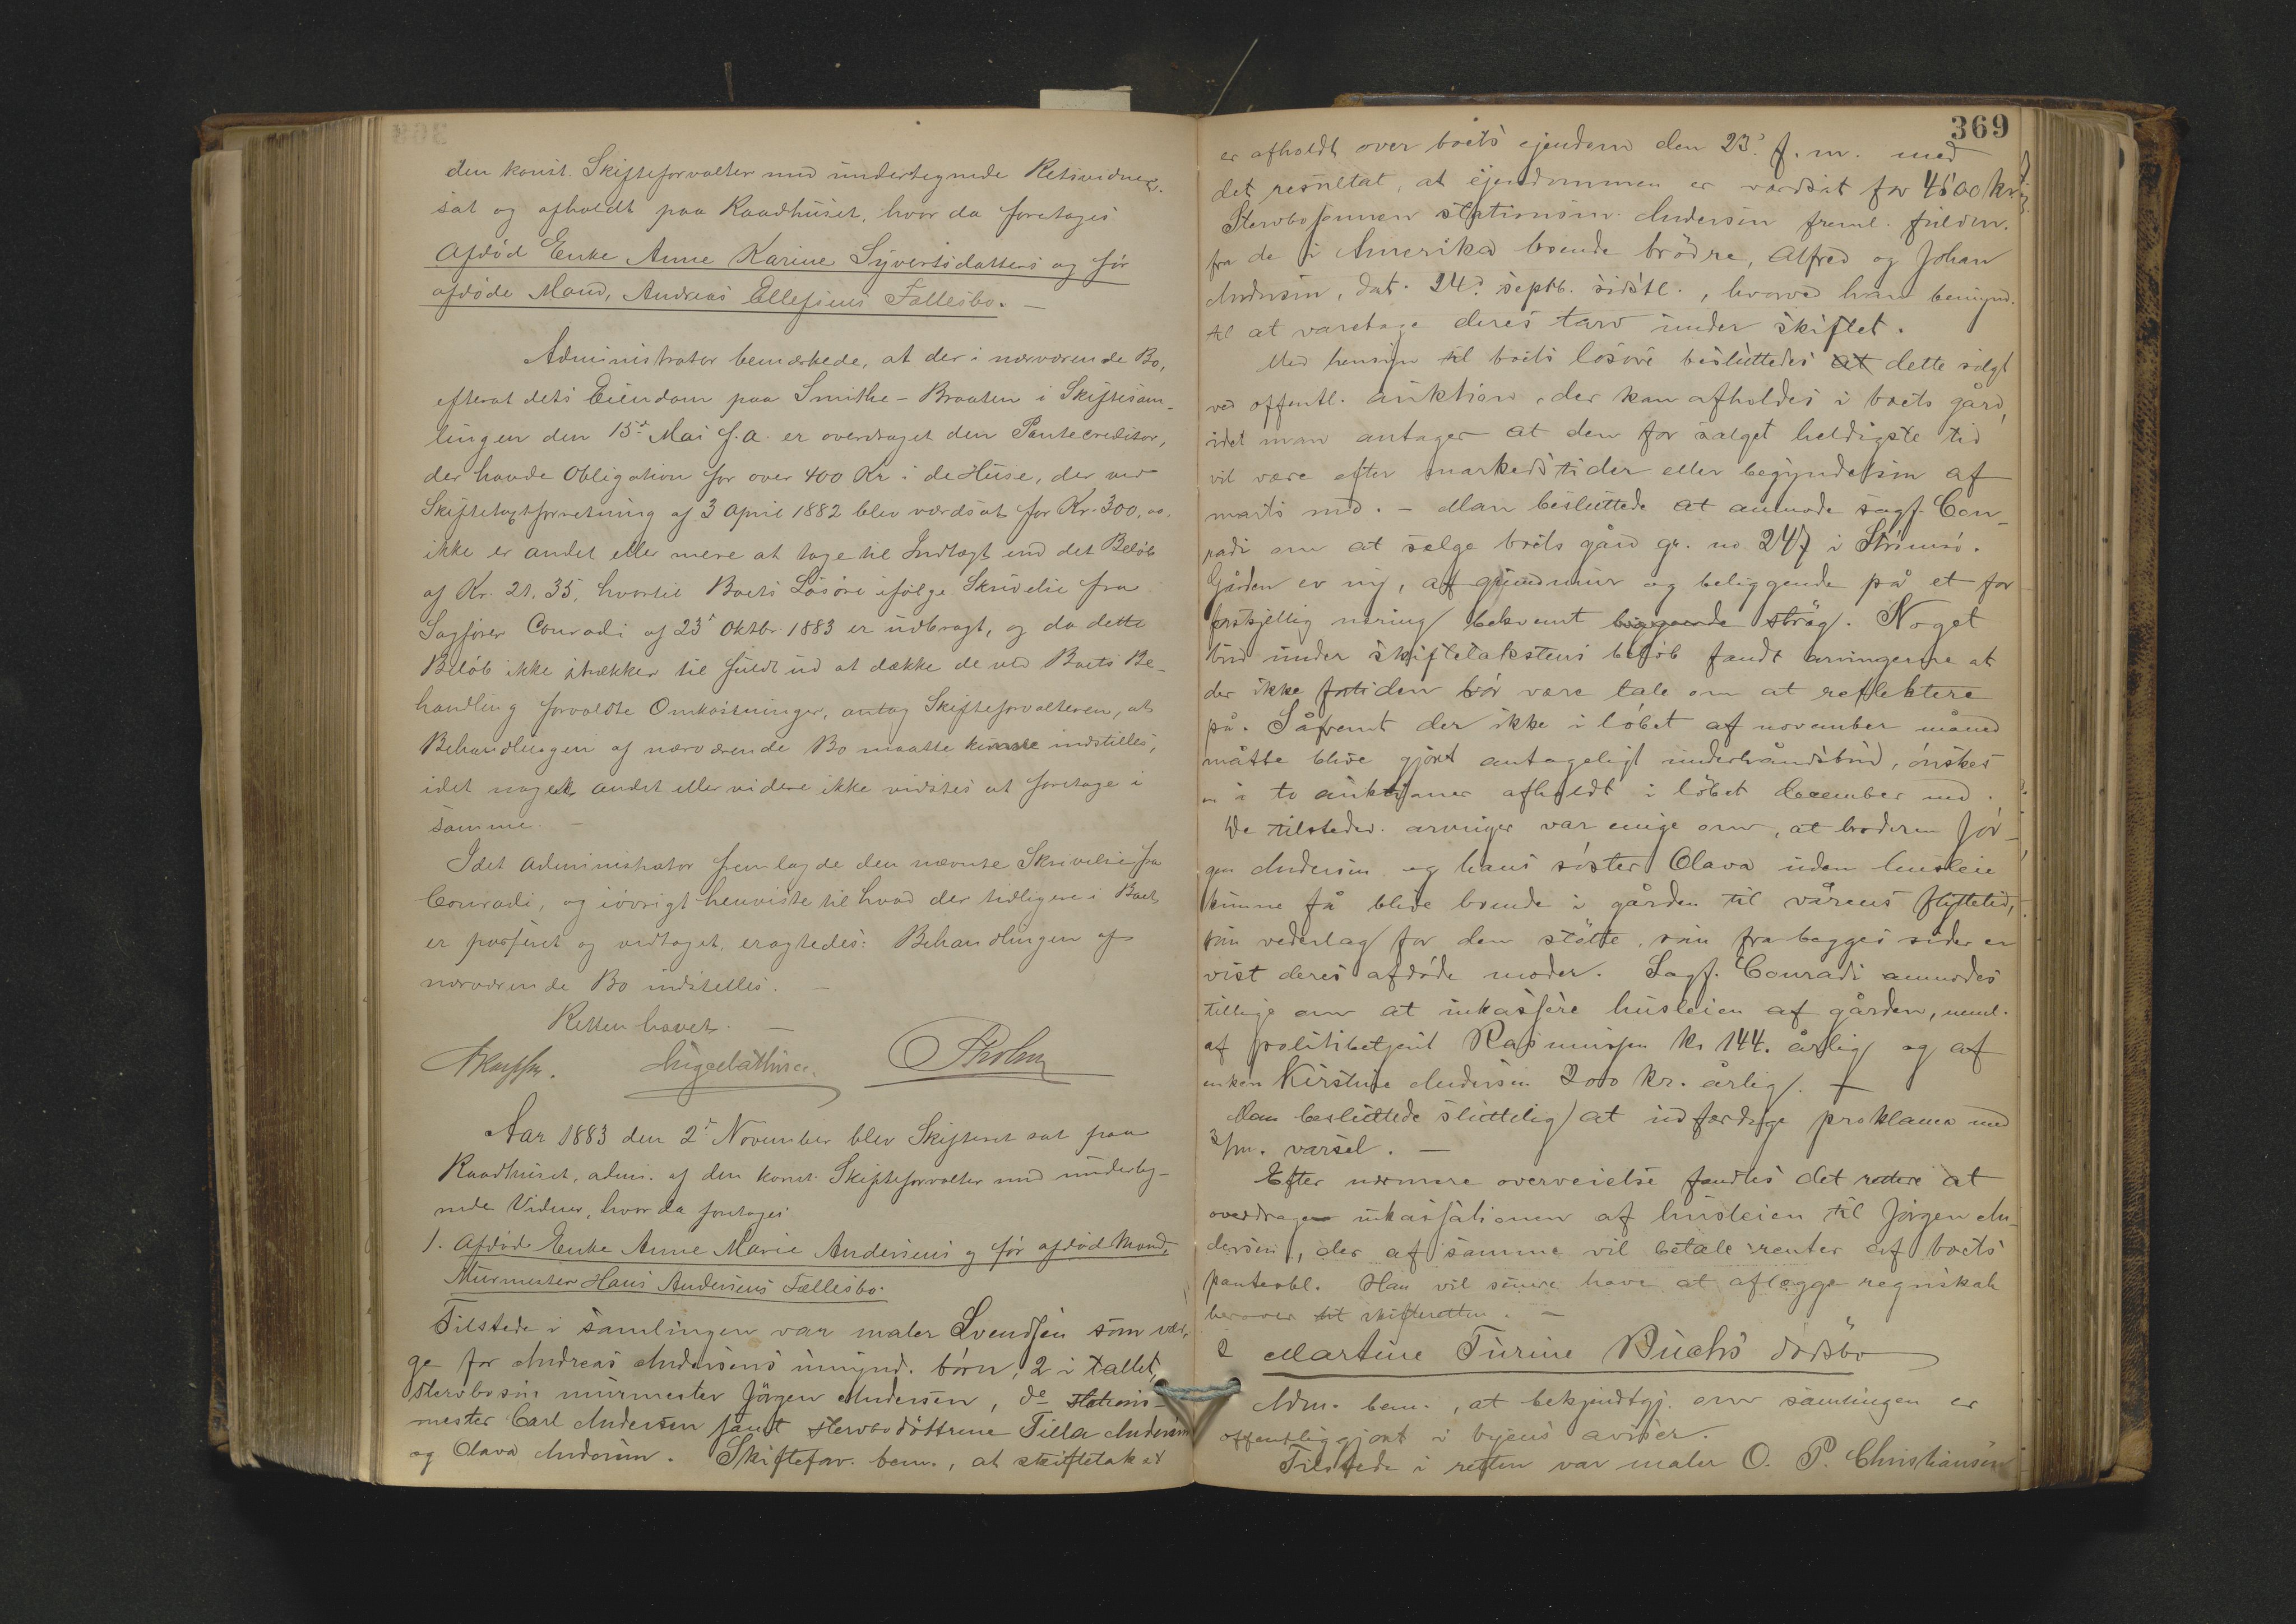 den konst. Skifteforvalter med undertegnede Retsvidner.
sat og afholdt paa Raadhuset, hvor da foretoges
Afdød Enke Anne Karine Syvertsdatters og før
afdøde Mand, Andreas Ellefsens Fællesbo. —
Administrator bemærkede, at der i nærværende Bo,
efterat dets Eiendom paa Smithe-Braaten i Skiftesam-
lingen den 15de Mai f.a. er overdraget den Pantecreditor,
der havde Obligation for over 400 Kr i de Huse, der ved
Skiftetaxtforretning af 3 April 1882 blev værdsat for Kr. 300,00,
ikke er andet eller mere at tage til Indtægt end det Beløb
af Kr. 21,35, hvortil Boets Løsøre ifølge Skrivelse fra
Sagfører Conradi af 23de Oktbr. 1883 er udbragt, og da dette
Beløb ikke strækker til fuldt ud at dække de ved Boets Be-
handling forvoldte Omkostninger, antog Skifteforvalteren, at
Behandlingen af nærværende Bo maatte kunne indstilles,
idet noget andet eller videre ikke vidstes at foretage i
samme. —
Idet Administrator fremlagde den nævnte Skrivelse fra
Conradi, og iøvrigt henviste til hvad der tidligere i Boet
er passeret og vedtaget, eragtedes: Behandlingen af
nærværende Bo indstilles. —
Retten hævet. —
Aar 1883 den 2de November blev Skifteret sat paa
Raadhuset, adm. af den konst. Skifteforvalter med underteg-
nede Vidner, hvor da foretoges
1. Afdød Enke Anne Marie Andersens og før afdød Mand,
Murmester Hans Andersens Fællesbo.
Tilstede i samlingen var maler Svendsen som vær-
ge for Andreas Andersens umynd. børn, 2 i tallet,
sterbosøn murmester Jørgen Andersen, do stations-
mester Carl Andersen samt sterbodøttrene Tilla Andersen
og Olava Andersen. Skifteforv. bem., at skiftetakst
369
er afholdt over boets ejendom den 23de f.m. med
det resultat, at ejendommen er værdsat for 4500 kr.
Sterbosønnen stationsm. Andersen freml. fuldm.
fra de i Amerika boende brødre, Alfred og Johan
Andersen, dat. 24de septb. sidstl., hvorved han bemynd.
til at varetage deres tarv under skiftet.
Med hensyn til boets løsøre besluttedes at dette solgt
ved offentl. auktion, der kan afholdes i boets gård,
idet man antager at den for salget heldigste tid
vil være efter markedstider eller begyndelsen af
marts md. — Man besluttede at anmode sagf. Con-
radi om at sælge boets gård gr. no 247 i Strømsø.
Gården er ny, af grundmur og beliggende på et for
forskjellig næring bekvemt strøg. Noget
bud under skiftetakstens beløb fandt arvingerne at
der ikke fortiden bør være tale om at reflektere
på. Såfremt der ikke i løbet af november måned
måtte blive gjort antageligt underhåndsbud, ønskes
en à to auktioner afholdt i løbet december md.
De tilstedev. arvinger var enige om, at broderen Jør-
gen Andersen og hans søster Olava uden husleie
kunne få blive boende i gården til vårens flyttetid,
som vederlag for den støtte, som fra begges sider er
vist deres afdøde moder. Sagf. Conradi anmodes
tillige om at inkassere husleien af gården, neml.
af politibetjent Rasmussen kr 144. årlig og af
enken Kirstine Andersen 200 kr. årlig.
Man besluttede sluttelig at udfærdige proklama med
varsel. —
Efter nærmere overveielse fandtes det rettere at
overdrage inkassationen af husleien til Jørgen An-
dersen, der af samme vil betale renter af boets
panteobl. Han vil senere have at aflægge regnskab
herover til skifteretten. —
2 Martine Turine Buchs dødsbo
Adm. bem., at bekjendtgj. om samlingen er
offentliggjort i byens aviser.
Tilstede i retten var maler O. P. Christiansen